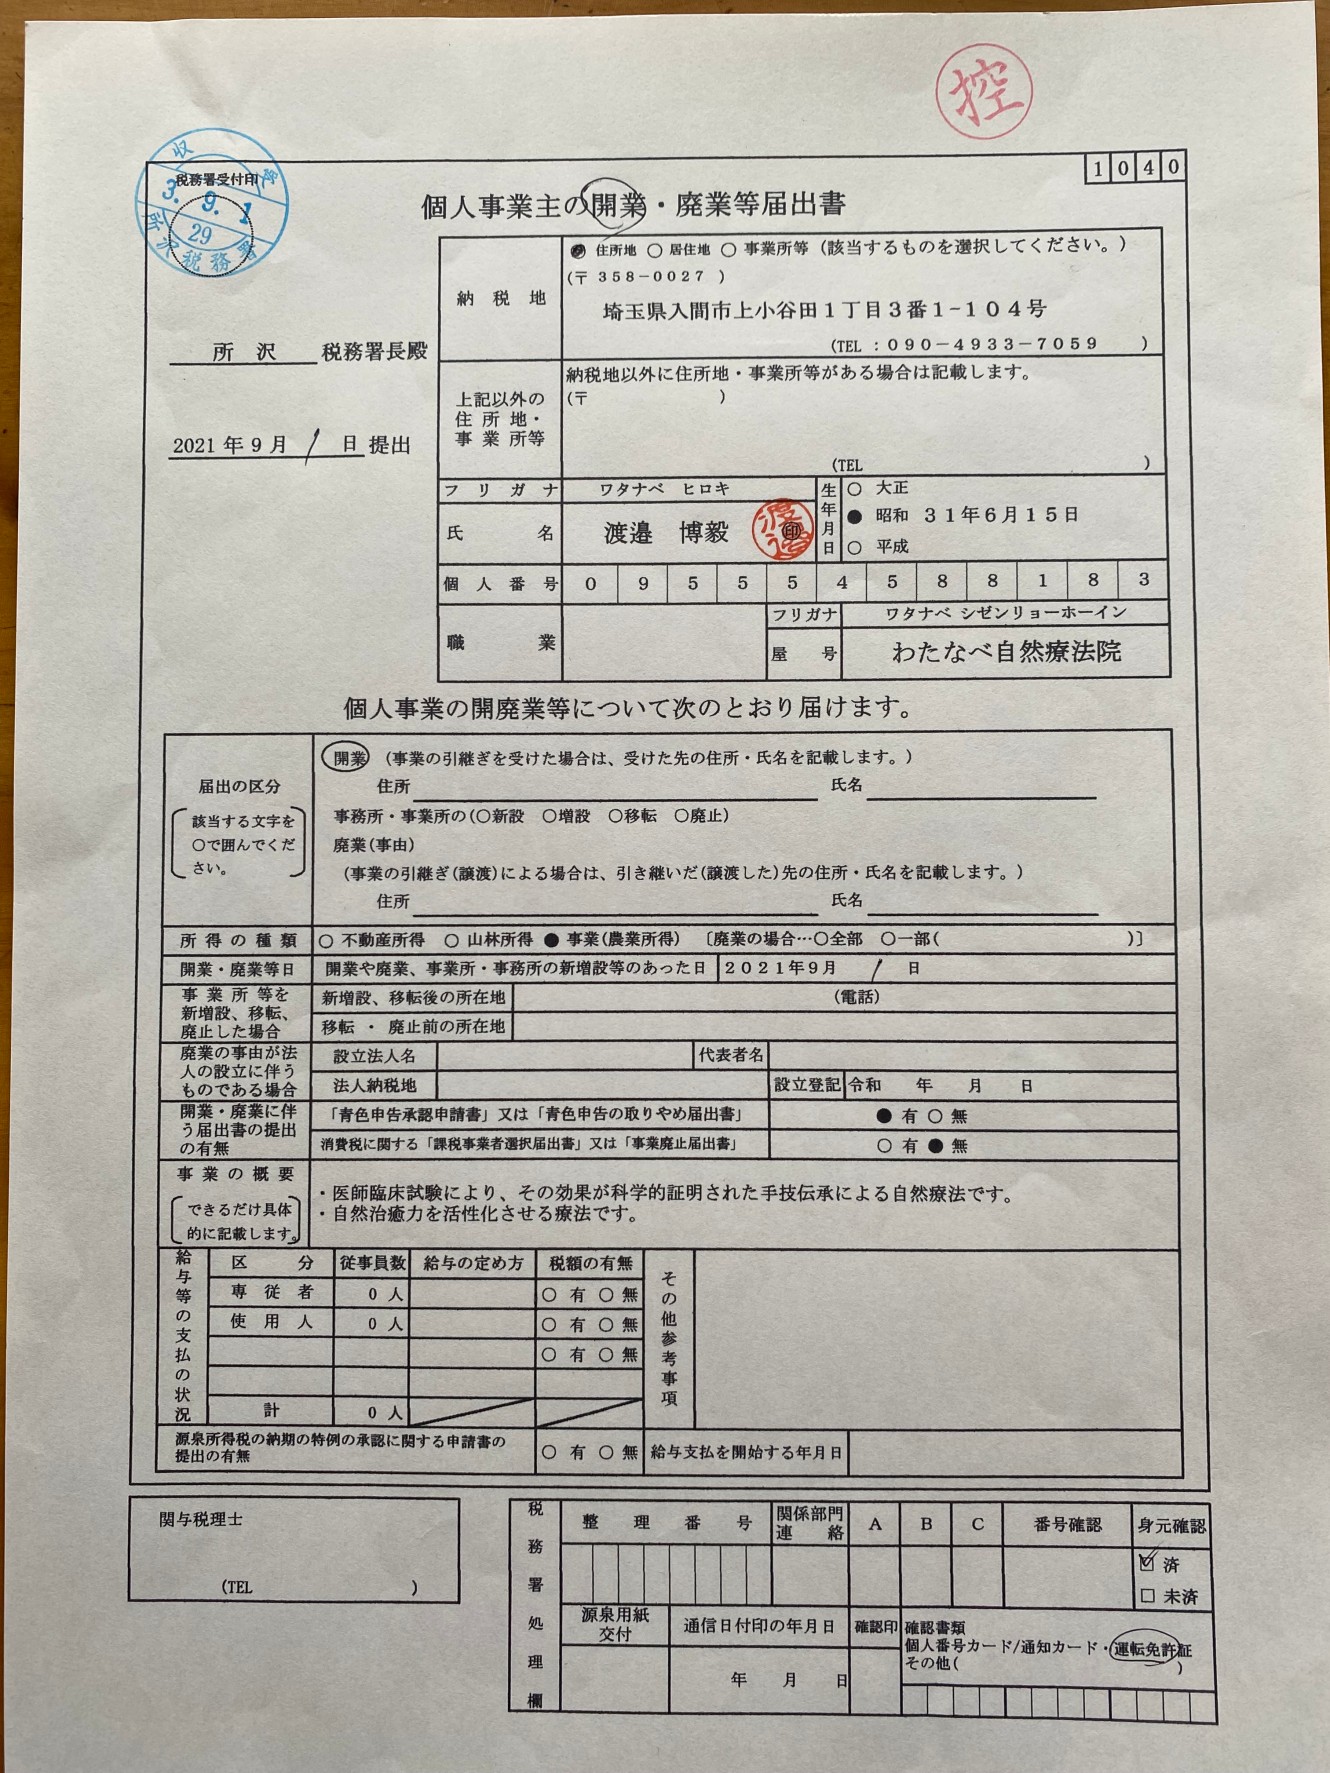 控
1040
収受
税務署受付印
3. 9. 1
29
所沢税務署
個人事業主の開業・廃業等届出書
納税地
住所地 ○ 居住地 ○ 事業所等（該当するものを選択してください。）
(〒358-0027 )
埼玉県入間市上小谷田1丁目3番1-104号
(TEL :090-4933-7059 )
所沢 税務署長殿
上記以外の住所地・事業所等
納税地以外に住所地・事業所等がある場合は記載します。
(〒 )
(TEL )
2021年9月 1 日提出
フリガナ ワタナベ ヒロキ
氏名 渡邉 博毅 ㊞ 渡邉
生年月日
○ 大正
● 昭和 31年6月15日
○ 平成
個人番号 0 9 5 5 5 4 5 8 8 1 8 3
職業
フリガナ ワタナベ シゼンリョーホーイン
屋号 わたなべ自然療法院
個人事業の開廃業等について次のとおり届けます。
届出の区分
該当する文字を
○で囲んでくだ
さい。
開業 (事業の引継ぎを受けた場合は、受けた先の住所・氏名を記載します。)
住所 氏名
事務所・事業所の(○新設 ○増設 ○移転 ○廃止)
廃業(事由)
(事業の引継ぎ(譲渡)による場合は、引き継いだ(譲渡した)先の住所・氏名を記載します。)
住所 氏名
所得の種類 ○ 不動産所得 ○ 山林所得 ● 事業(農業所得) 〔廃業の場合…○全部 ○一部( )〕
開業・廃業等日 開業や廃業、事業所・事務所の新増設等のあった日 2021年9月 1 日
事業所等を
新増設、移転、
廃止した場合
新増設、移転後の所在地 (電話)
移転・廃止前の所在地
廃業の事由が法
人の設立に伴う
ものである場合
設立法人名 代表者名
法人納税地 設立登記 令和 年 月 日
開業・廃業に伴
う届出書の提出
の有無
「青色申告承認申請書」又は「青色申告の取りやめ届出書」 ● 有 ○ 無
消費税に関する「課税事業者選択届出書」又は「事業廃止届出書」 ○ 有 ● 無
事業の概要
できるだけ具体
的に記載します。
・医師臨床試験により、その効果が科学的証明された手技伝承による自然療法です。
・自然治癒力を活性化させる療法です。
給与等の支払の状況
区分 従事員数 給与の定め方 税額の有無
専従者 0人 ○ 有 ○ 無
使用人 0人 ○ 有 ○ 無
○ 有 ○ 無
計 0人
その他参考事項
源泉所得税の納期の特例の承認に関する申請書の
提出の有無
○ 有 ○ 無
給与支払を開始する年月日
関与税理士
(TEL )
税務署処理欄
整理番号 関係部門連絡 A B C 番号確認 身元確認
☑ 済
□ 未済
源泉用紙交付 通信日付印の年月日 確認印
年 月 日
確認書類
個人番号カード/通知カード・運転免許証
その他( )